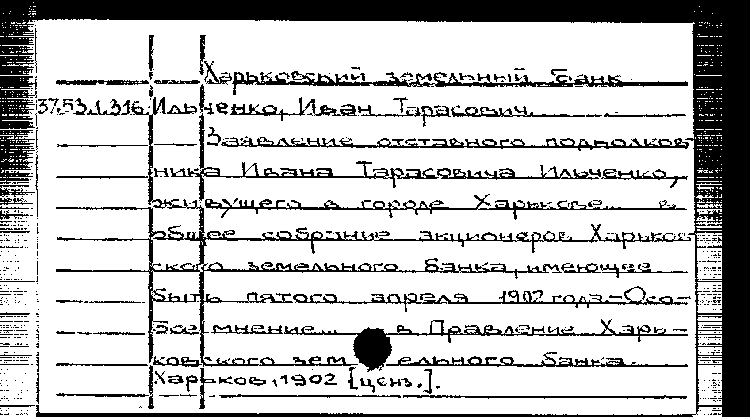 Харьковский земельный банк
37.53.1.316 Ильченко, Иван Тарасович.
Заявление отставного подполков-
ника Ивана Тарасовича Ильченко,
живущего в городе Харькове... в
общее собрание акционеров Харьков-
ского земельного банка, имеющее
быть пятого апреля 1902 года.-Осо-
бое мнение... в Правление Харь-
ковского земельного банка.
Харьков, 1902 [ценз.].